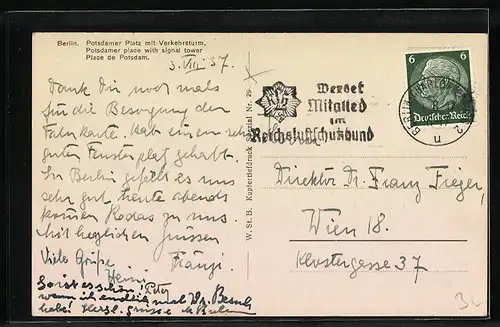 Berlin. Potsdamer Platz mit Verkehrsturm,
Potsdamer place with signal tower
Place de Potsdam.
3. VIII 37.
Dank Dir noch mals
für die Besorgung der
Fahrkarte. Hab einen sehr
guten Fensterplatz gehabt.
In Berlin gefällt es uns
sehr gut heute abends
kommen Kodas zu uns.
Mit herzlichen Grüssen
Franzi.
Viele Grüße
Heini
So ist es schön! Peter
wenn ich endlich mal Dr. Besuch
habe! Herzl. Grüsse
W. St. B. Kupfertiefdruck Nr. 29
Werdet
Mitglied
im
Reichsluftschutzbund
6 6
Deutsches Reich
BERLIN
u
Direktor Dr. Franz Fieger,
Wien 18.
Klostergasse 37